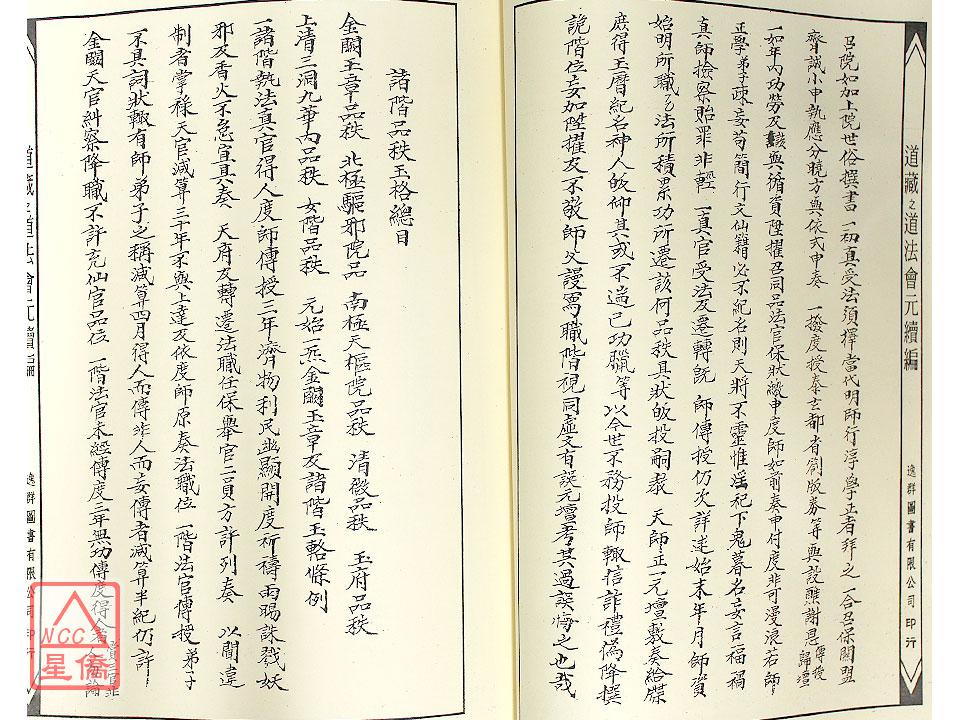 道藏之道法會元續編
逸群圖書有限公司印行
呂院如加上院世俗撰書一切真受法須擇當代明師行淳學正者拜之一合召保關盟
齊誠小申執應分曉方與依式申奏 一撥度授奉玄都省劄版券等與設醮謝恩傳授歸壇
一如年內功勞及 與循資陞擢召同品法官保狀繳申度師如前奏申付度非可漫浪若師
正學弟子疎妄苟簡行文仙籍必不紀名則天將不靈惟淫祀下鬼暮名妄言福禍
真師撿察貽罪非輕 一真官受法及遷轉既 師傳授仍次詳述始末年月師資
始明所職之法所積累功所遷該何品秩具狀皈投嗣教 天師正一元壇敷奏給牒
庶得玉曆紀名神人皈仰其或不遄已功躐等以今世不務投師輒信詐禮偽降撰
詭階位妄加陞擢及不敬師父謾寫職階視同虛文有誤元壇考其過誤悔之也哉
諸階品秩玉格總目
金闕玉章品秩 北極驅邪院品 南極天樞院品秩 清微品秩 玉府品秩
上清三洞九華內品秩 女階品秩 元始一炁金闕玉章及諸階玉輅條例
一諸階執法真官得人度師傳授三年濟物利民幽顯開度祈禱雨賜誅戮妖
邪及香火不怠宜具奏 天府及轉遷法職任保舉官二員方許列奏 以聞違
制者掌祿天官減算三十年不與上達及依度師原奏法職位 一階法官傳授弟子
不具詞狀輒有師弟子之稱減算四月得人而傳非人而妄傳者減算半紀仍許
金闕天官糾察降職不許充仙官品位 一階法官未經傳度三年無功傳度得
道藏之道法會元續編
逸群圖書有限公司印行
NCC
星僑